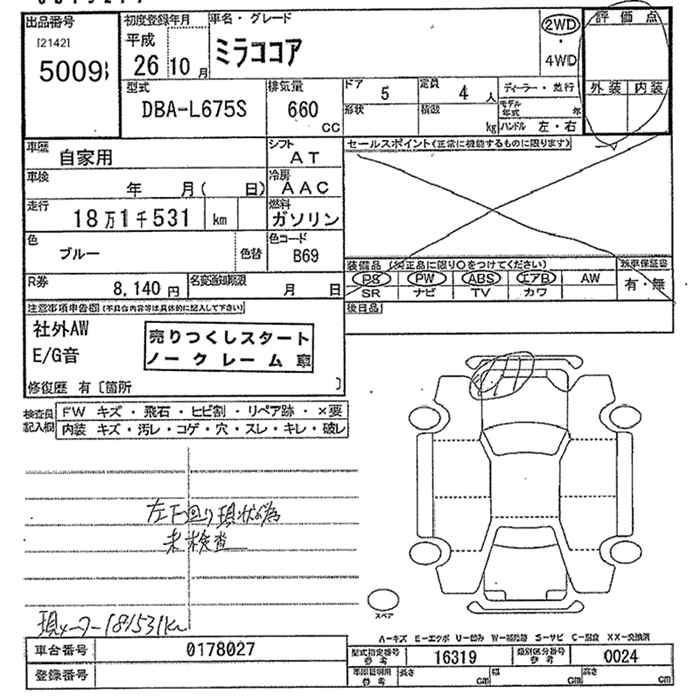 出品番号 初度登録年月 車名・グレード 2WD 評価点
[2142] 平成 ミラココア ・
5009 26 10月 4WD 外装 内装
型式 排気量 ドア 5 定員 4人 ディーラー・並行
DBA-L675S 660 形状 積載 モデル年式 年
CC kg ハンドル 左・右
車歴 シフト セールスポイント(正常に機能するものに限ります)
自家用 AT
車検 冷房
年 月( 日) AAC
走行 燃料
18万1千531 km ガソリン
色 色替 色コード
ブルー B69 装備品 (※正品に限り○をつけてください) 新車保証書
R券 名変通知期限 PS PW ABS エアB AW 有・無
8,140円 月 日 SR ナビ TV カワ
注意事項申告欄(不具合内容等は具体的に記入して下さい) 後日品
社外AW 売りつくしスタート
E/G音 ノークレーム車
修復歴 有〔箇所 〕
検査員 FW キズ・飛石・ヒビ割・リペア跡・×要
記入欄 内装 キズ・汚レ・コゲ・穴・スレ・キレ・破レ
左下回り現状為
未検査
スペア
現メーター181531km
A-キズ E-エクボ U-凹み W-補修跡 S-サビ C-腐食 XX-交換済
車台番号 0178027 型式指定番号 参考 16319 類別区分番号 参考 0024
登録番号 長さ cm 幅 cm 高さ cm